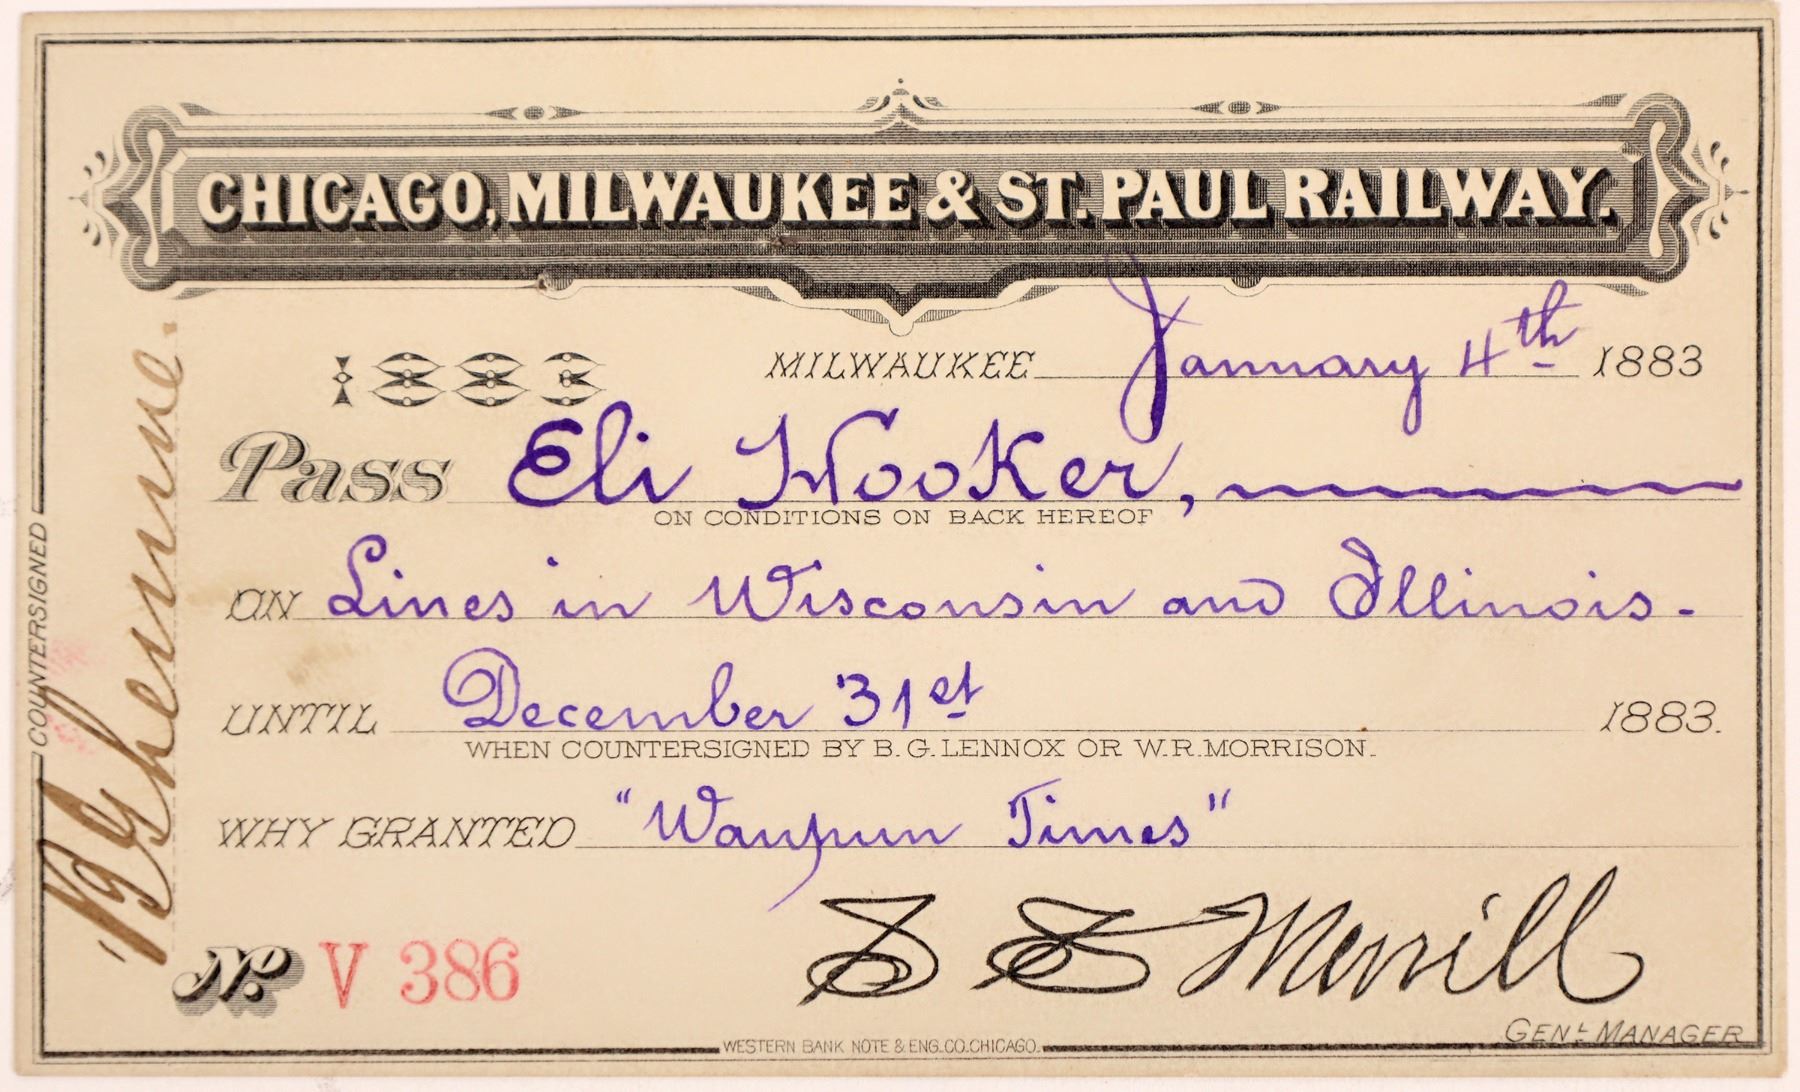 CHICAGO, MILWAUKEE & ST. PAUL RAILWAY.
1883 MILWAUKEE January 4th 1883
Pass Eli Hooker,
ON CONDITIONS ON BACK HEREOF
ON Lines in Wisconsin and Illinois.
UNTIL December 31st 1883.
WHEN COUNTERSIGNED BY B. G. LENNOX OR W. R. MORRISON.
WHY GRANTED "Waupun Times"
No. V 386 S S Merrill
GENL MANAGER
WESTERN BANK NOTE & ENG. CO. CHICAGO.
COUNTERSIGNED